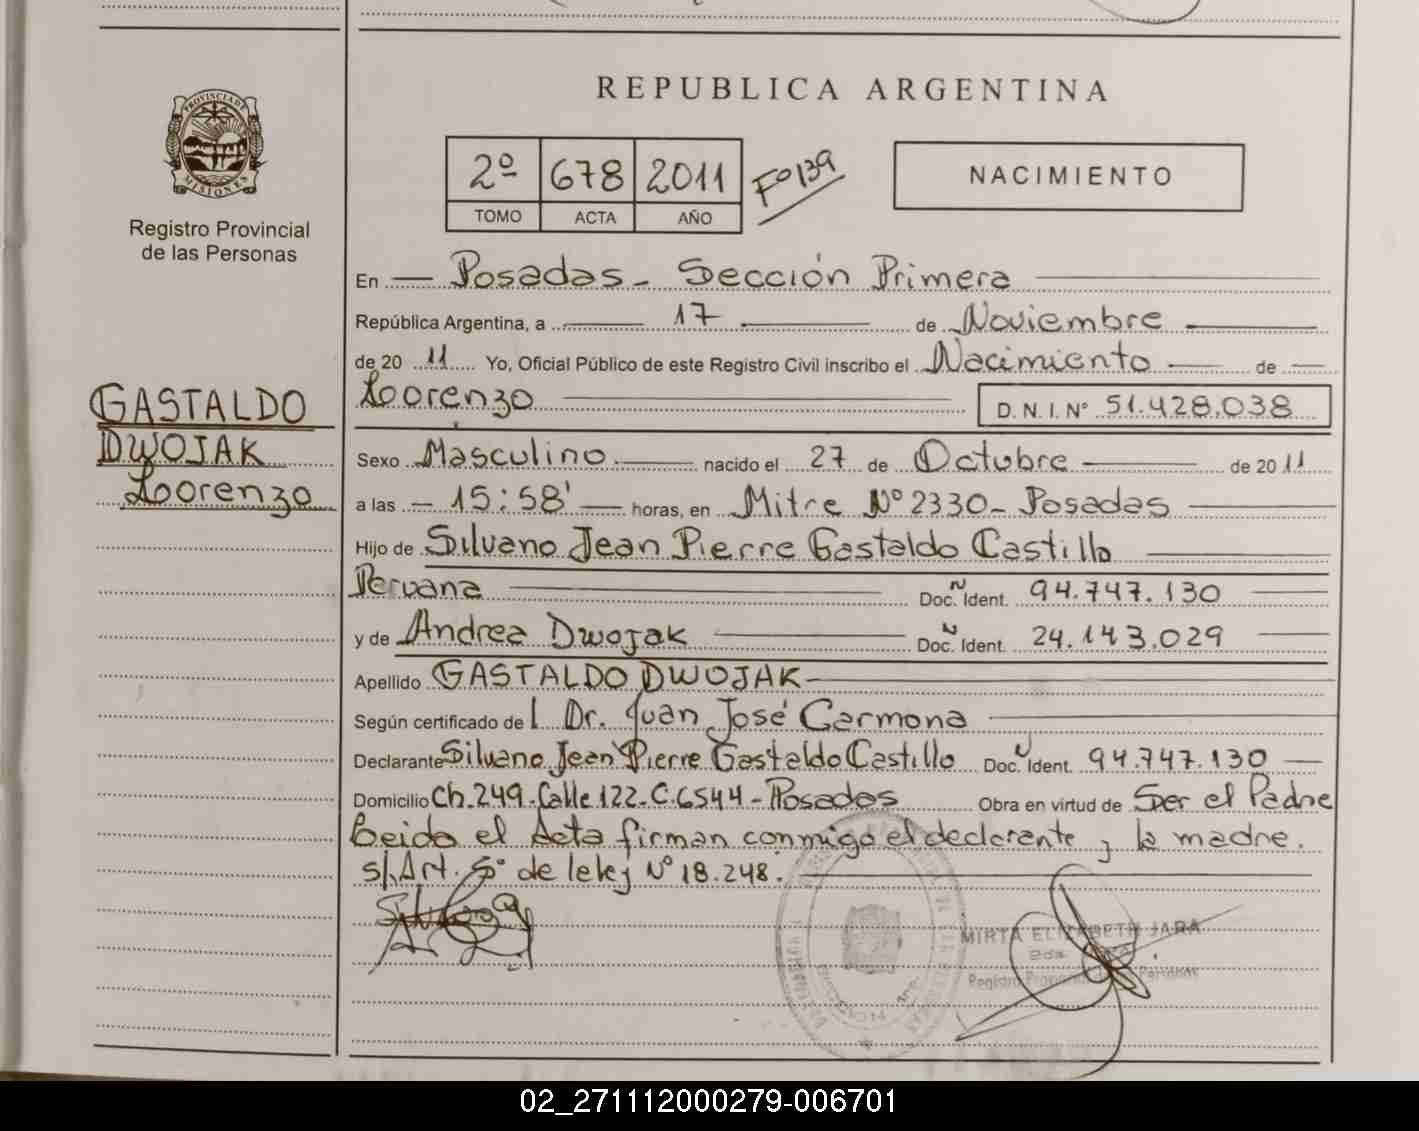 REPUBLICA ARGENTINA
PROVINCIA DE MISIONES
Registro Provincial
de las Personas
2º 678 2011 Fº 139
TOMO ACTA AÑO
NACIMIENTO
En Posadas - Sección Primera
República Argentina, a 17 de Noviembre
de 20 11 Yo, Oficial Público de este Registro Civil inscribo el Nacimiento de
Loorenzo D. N. I. Nº 51.428.038
GASTALDO
DWOJAK
Loorenzo
Sexo Masculino nacido el 27 de Octubre de 20 11
a las - 15:58' horas, en Mitre Nº 2330 - Posadas
Hijo de Silvano Jean Pierre Gastaldo Castillo
Peruana Doc. Ident. 94.747.130
y de Andrea Dwojak Doc. Ident. 24.143.029
Apellido GASTALDO DWOJAK
Según certificado de l Dr. Juan José Carmona
Declarante Silvano Jean Pierre Gastaldo Castillo Doc. Ident. 94.747.130
Domicilio Ch. 249 - Calle 122 - C. 6544 - Posadas Obra en virtud de Ser el Padre
Leida el Acta firman conmigo el declarante y la madre.
s/ Art. 5º de la ley Nº 18.248.
MIRTA ELIZABETH JARA
Registro Provincial de las Personas
02_271112000279-006701